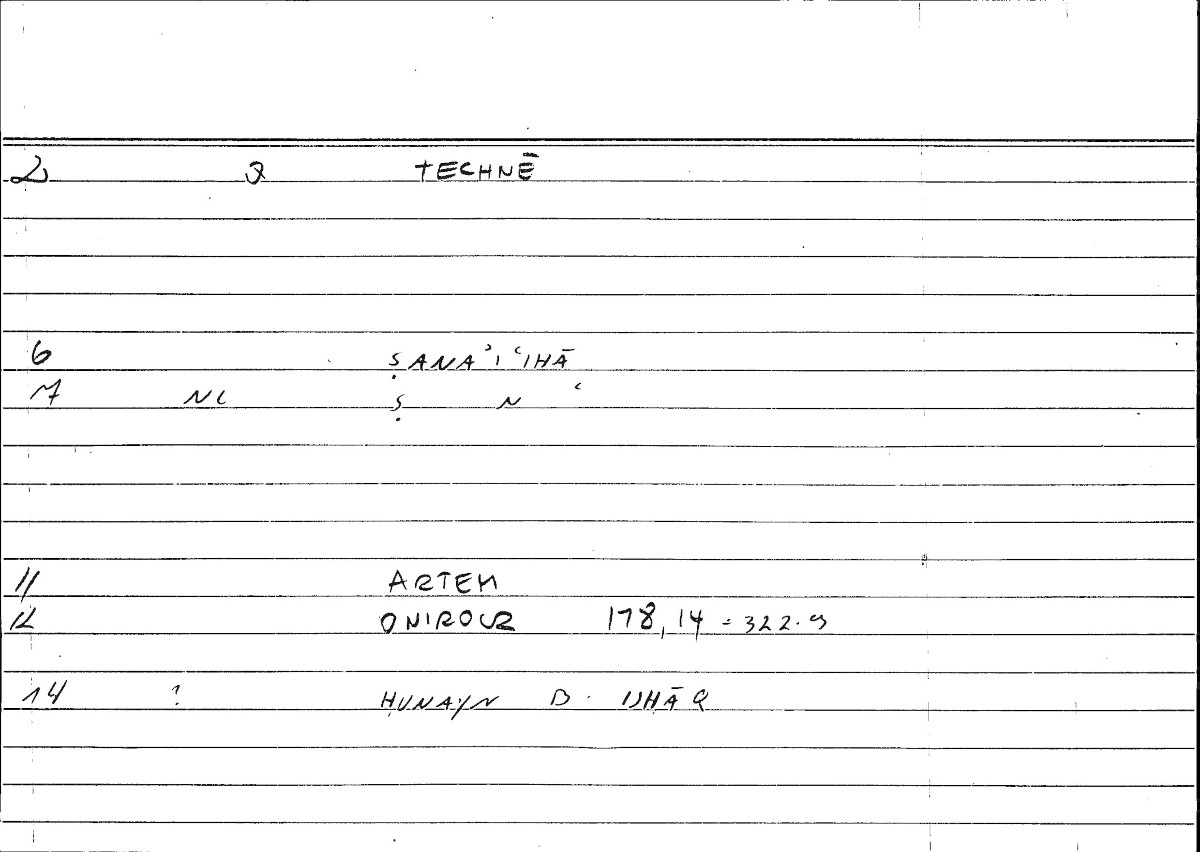 2 2 TECHNĒ
6 ṢANAʾIʿIHĀ
7 NC Ṣ N ʿ
11 ARTEM
12 ONIROCR 178,14 = 322.9
14 ? ḤUNAYN B. ISḤĀQ